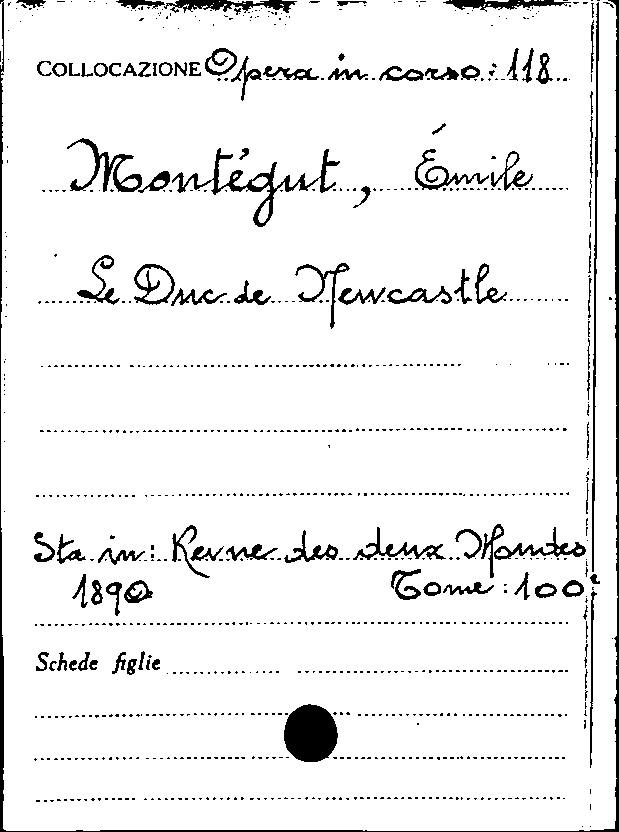 COLLOCAZIONE Opera in corso: 118
Montégut, Émile
Le Duc de Newcastle
Sta in: Revue des deux Mondes
1890 Tome: 100e
Schede figlie